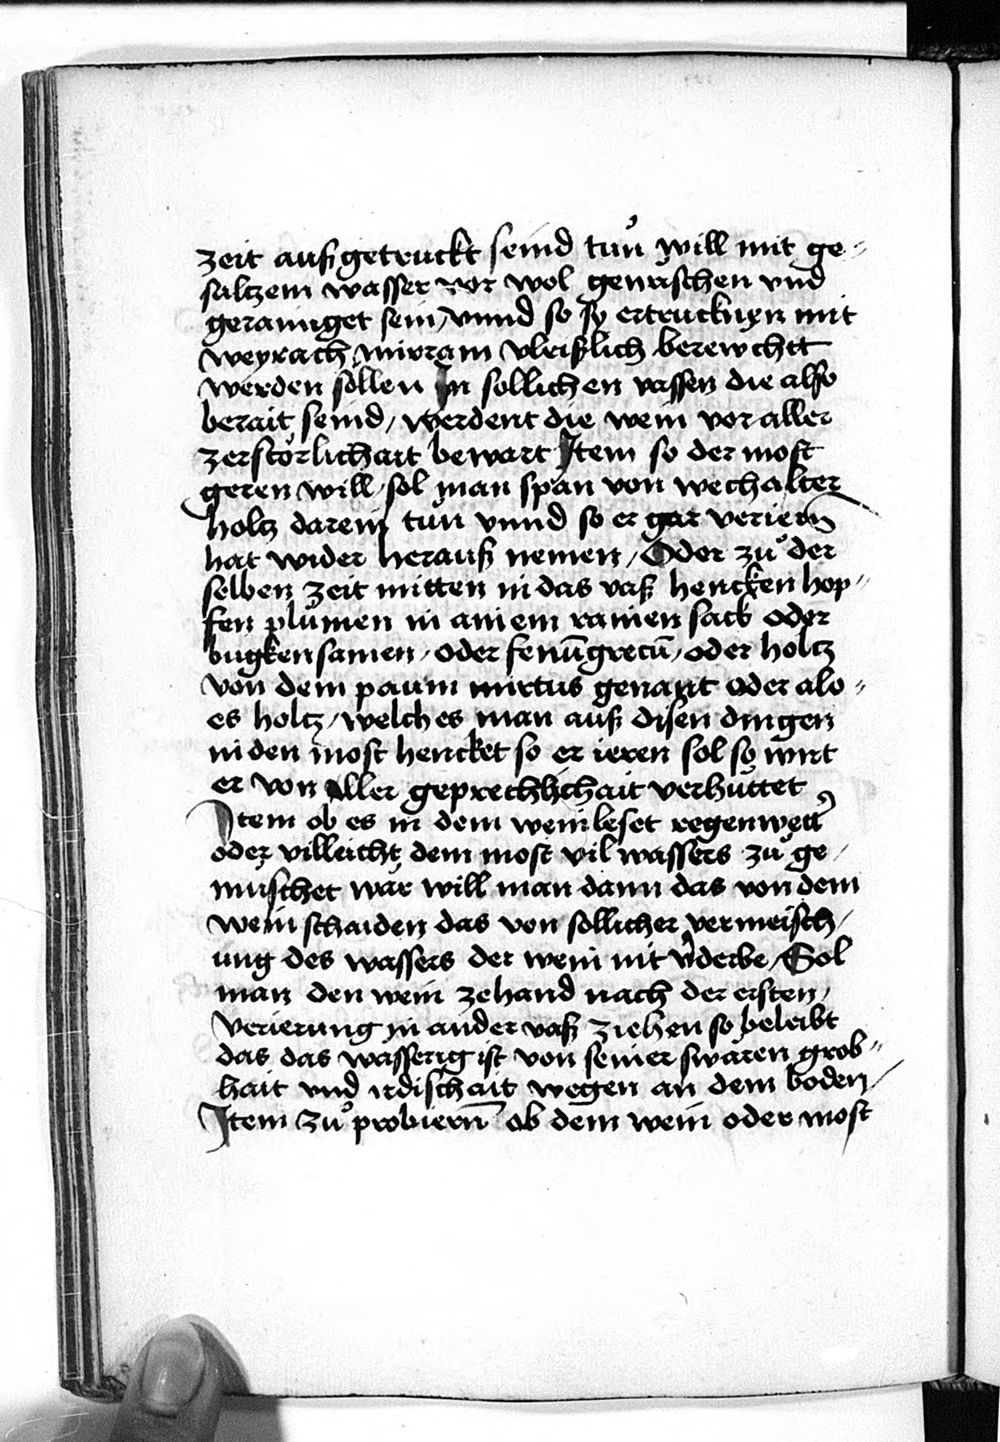 zeit außgetruckt seind tuͦn will mit ge⸗
saltzem wasser vor wol gewaschen vnd
gerainiget sein / vnnd so sy ertrucknen mit
weyrach mirram vleißlich berewchtt
werden söllen In sollichen vassen die also
berait seind / werdent die wein vor aller
zerstörlichait bewart Item so der most
geren will / sol man span von wechalter
holtz darein tuͦn vnnd so er gar verierñ
hat wider herauß nemen / Oder zuͦ der
selben zeit mitten in das vaß hencken hop⸗
fen pluͦmen in ainem rainen sack oder
bugken samen / oder fenūgrecū / oder holtz
von dem paum mirtus genant oder alo⸗
es holtz / welches man auß disen dingen
in den most hencket so er ieren sol so wirt
er von aller geprechlichait verhüttet
Item ob es in dem weinleset regenwett᷑
oder villeicht dem most vil wassers zuͦ ge /
muschet wär will man dann das von dem
wein schaiden das von sollicher vermeisch /
ung des wassers der wein nit v᷑derbe / Sol
man den wein zehand nach der ersten /
verierung in ander vaß ziehen so beleibt
das das wasserig ist von seiner swären grob⸗
hait vnd irdischait wegen an dem boden /
Item zuͦ probierñ ob dem wein oder most